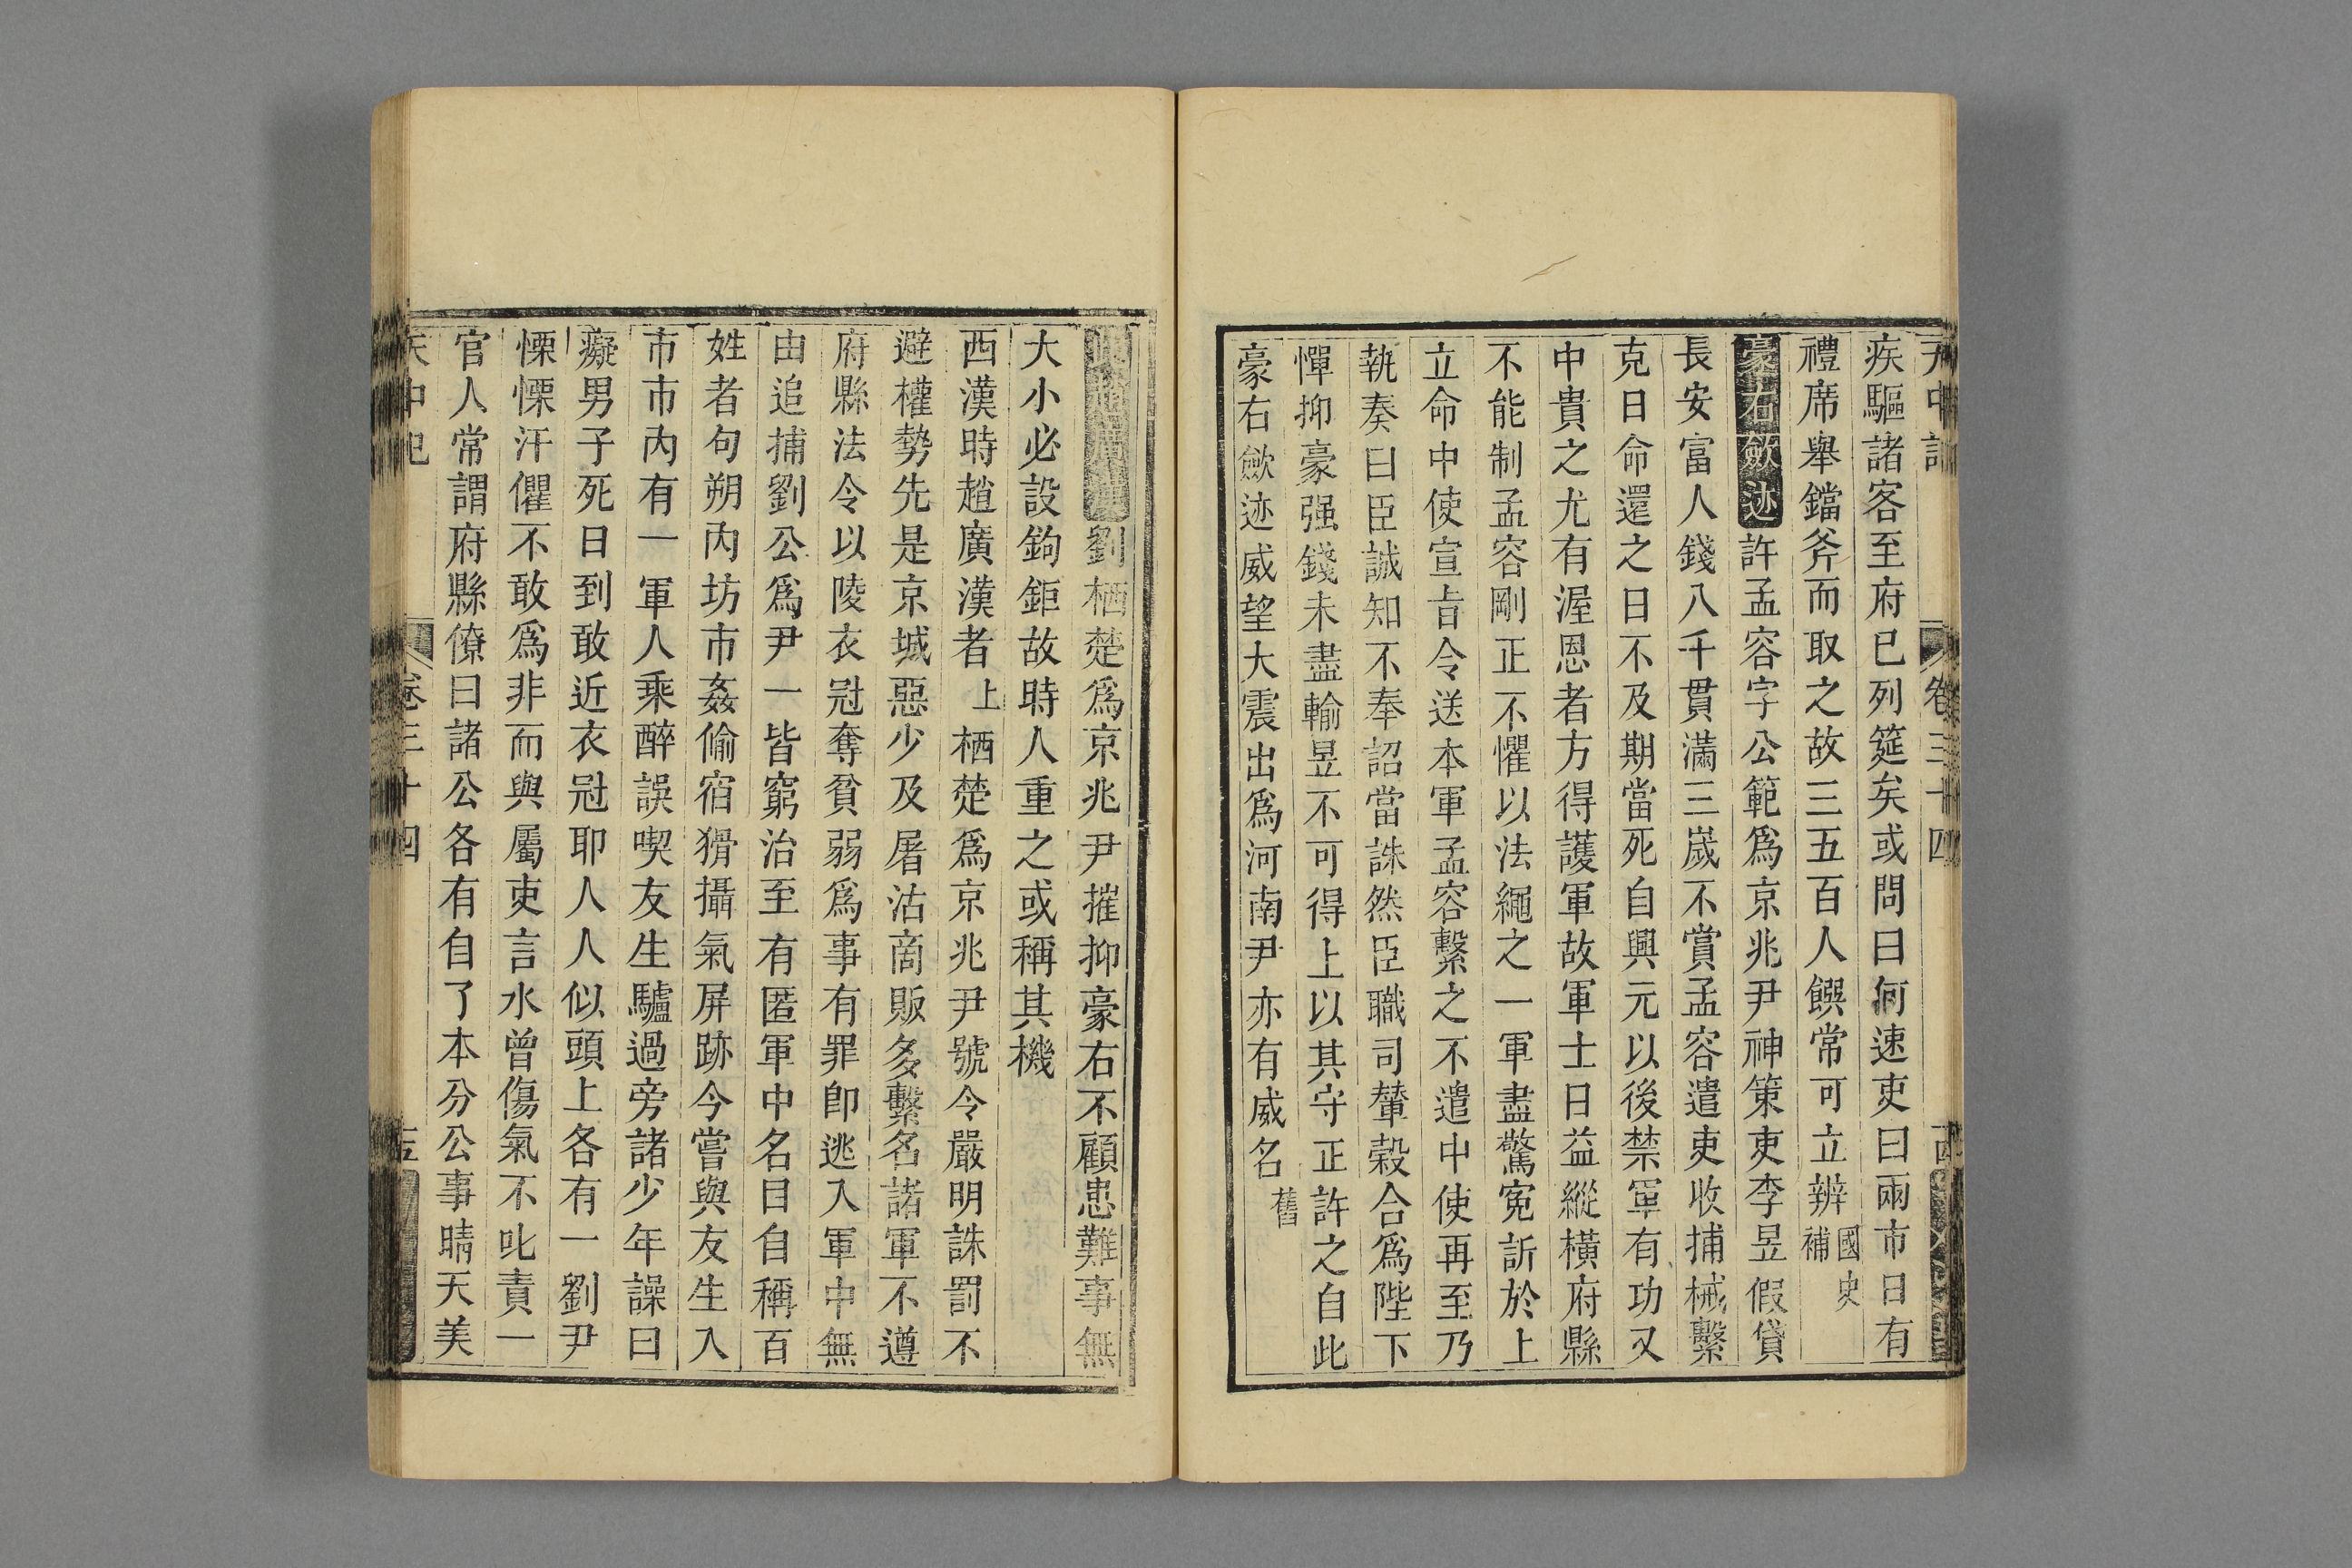 天中記 卷三十四
疾驅諸客至府巳列筵矣或問曰何速吏曰兩市日有
禮席舉鐺斧而取之故三五百人饌常可立辨國史補
豪右歛迹許孟容字公範爲京兆尹神策吏李昱假貸
長安富人錢八千貫滿三歲不賞孟容遣吏收捕械繫
克日命還之日不及期當死自興元以後禁軍有功又
中貴之尤有渥恩者方得護軍故軍士日益縱橫府縣
不能制孟容剛正不懼以法繩之一軍盡驚寃訢於上
立命中使宣旨令送本軍孟容繫之不遣中使再至乃
執奏曰臣誠知不奉詔當誅然臣職司輦轂合爲陛下
憚抑豪强錢未盡輸昱不可得上以其守正許之自此
豪右歛迹威望大震出爲河南尹亦有威名舊
趙廣漢劉栖楚爲京兆尹摧抑豪右不顧患難事無
大小必設鉤鉅故時人重之或稱其機
西漢時趙廣漢者上栖楚爲京兆尹號令嚴明誅罰不
避權勢先是京城惡少及屠沽商販多繫名諸軍不遵
府縣法令以陵衣冠奪貧弱爲事有罪卽逃入軍中無
由追捕劉公爲尹一皆窮治至有匿軍中名目自稱百
姓者句朔內坊市姦偷宿猾攝氣屏跡今嘗與友生入
市市內有一軍人乘醉誤喫友生驢過旁諸少年譟曰
癡男子死日到敢近衣冠耶人人似頭上各有一劉尹
慄慄汗懼不敢爲非而與屬吏言水曾傷氣不叱責一
官人常謂府縣僚曰諸公各有自了本分公事晴天美
天中記 卷三十四